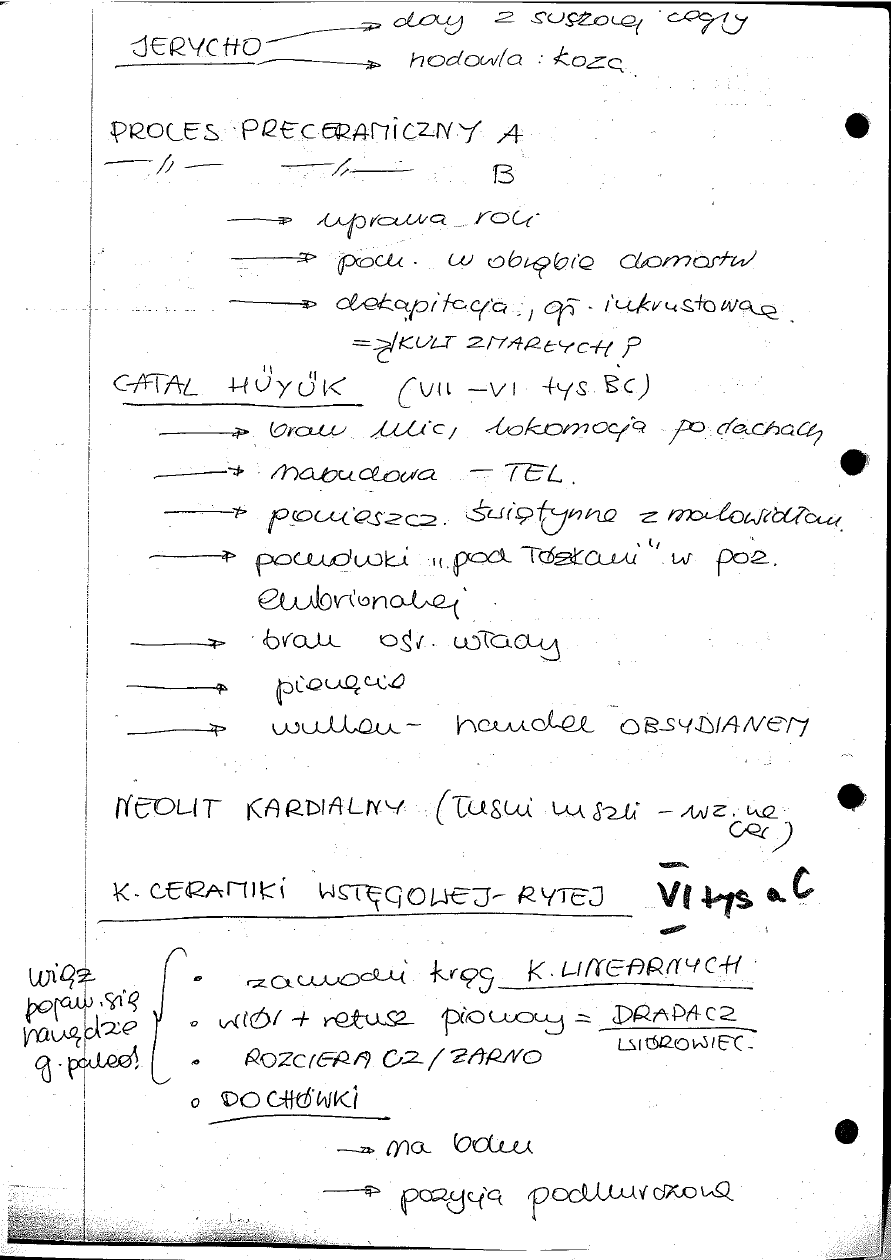 JERYCHO → domy z suszonej cegły
→ hodowla : koza
PROCES PRECERAMICZNY A
—//— —//— B
→ uprawa roli
→ poch. w obrębie domostw
→ dekapitacja, gł. inkrustowane.
=> KULT ZMARŁYCH?
CATAL HÜYÜK (VII – VI tys. BC)
→ brak ulic, lokomocja po dachach
→ nabudowa – TEL.
→ pomieszcz. świętynne z malowidłam.
→ pochówki „pod łóżkami" w poz.
embrionalnej
→ brak ośr. władzy
→ pieczęcie
→ wulkan – handel OBSYDIANEM
NEOLIT KARDIALNY (Tuski muszli – wz. na
cer.)
K. CERAMIKI WSTĘGOWEJ-RYTEJ VI tys a C
• zachodni krąg K. LINEARNYCH
więz
pojaw. się
narzędzie
g. paleol.
• wiór + retusz pionowy = DRAPACZ
WIÓROWIEC.
• ROZCIERACZ / ŻARNO
• POCHÓWKI
→ na boku
→ pozycja podkurczona